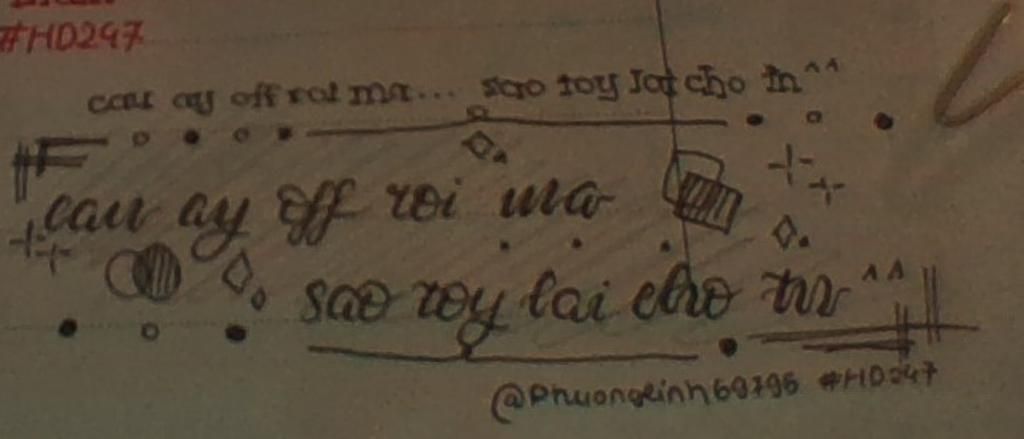 #HD247
cau ay off roi ma... sao roy lai cho tn^^
cau ay off roi ma
sao roy lai cho tn^^
@Phuonglinh69796 #HD247